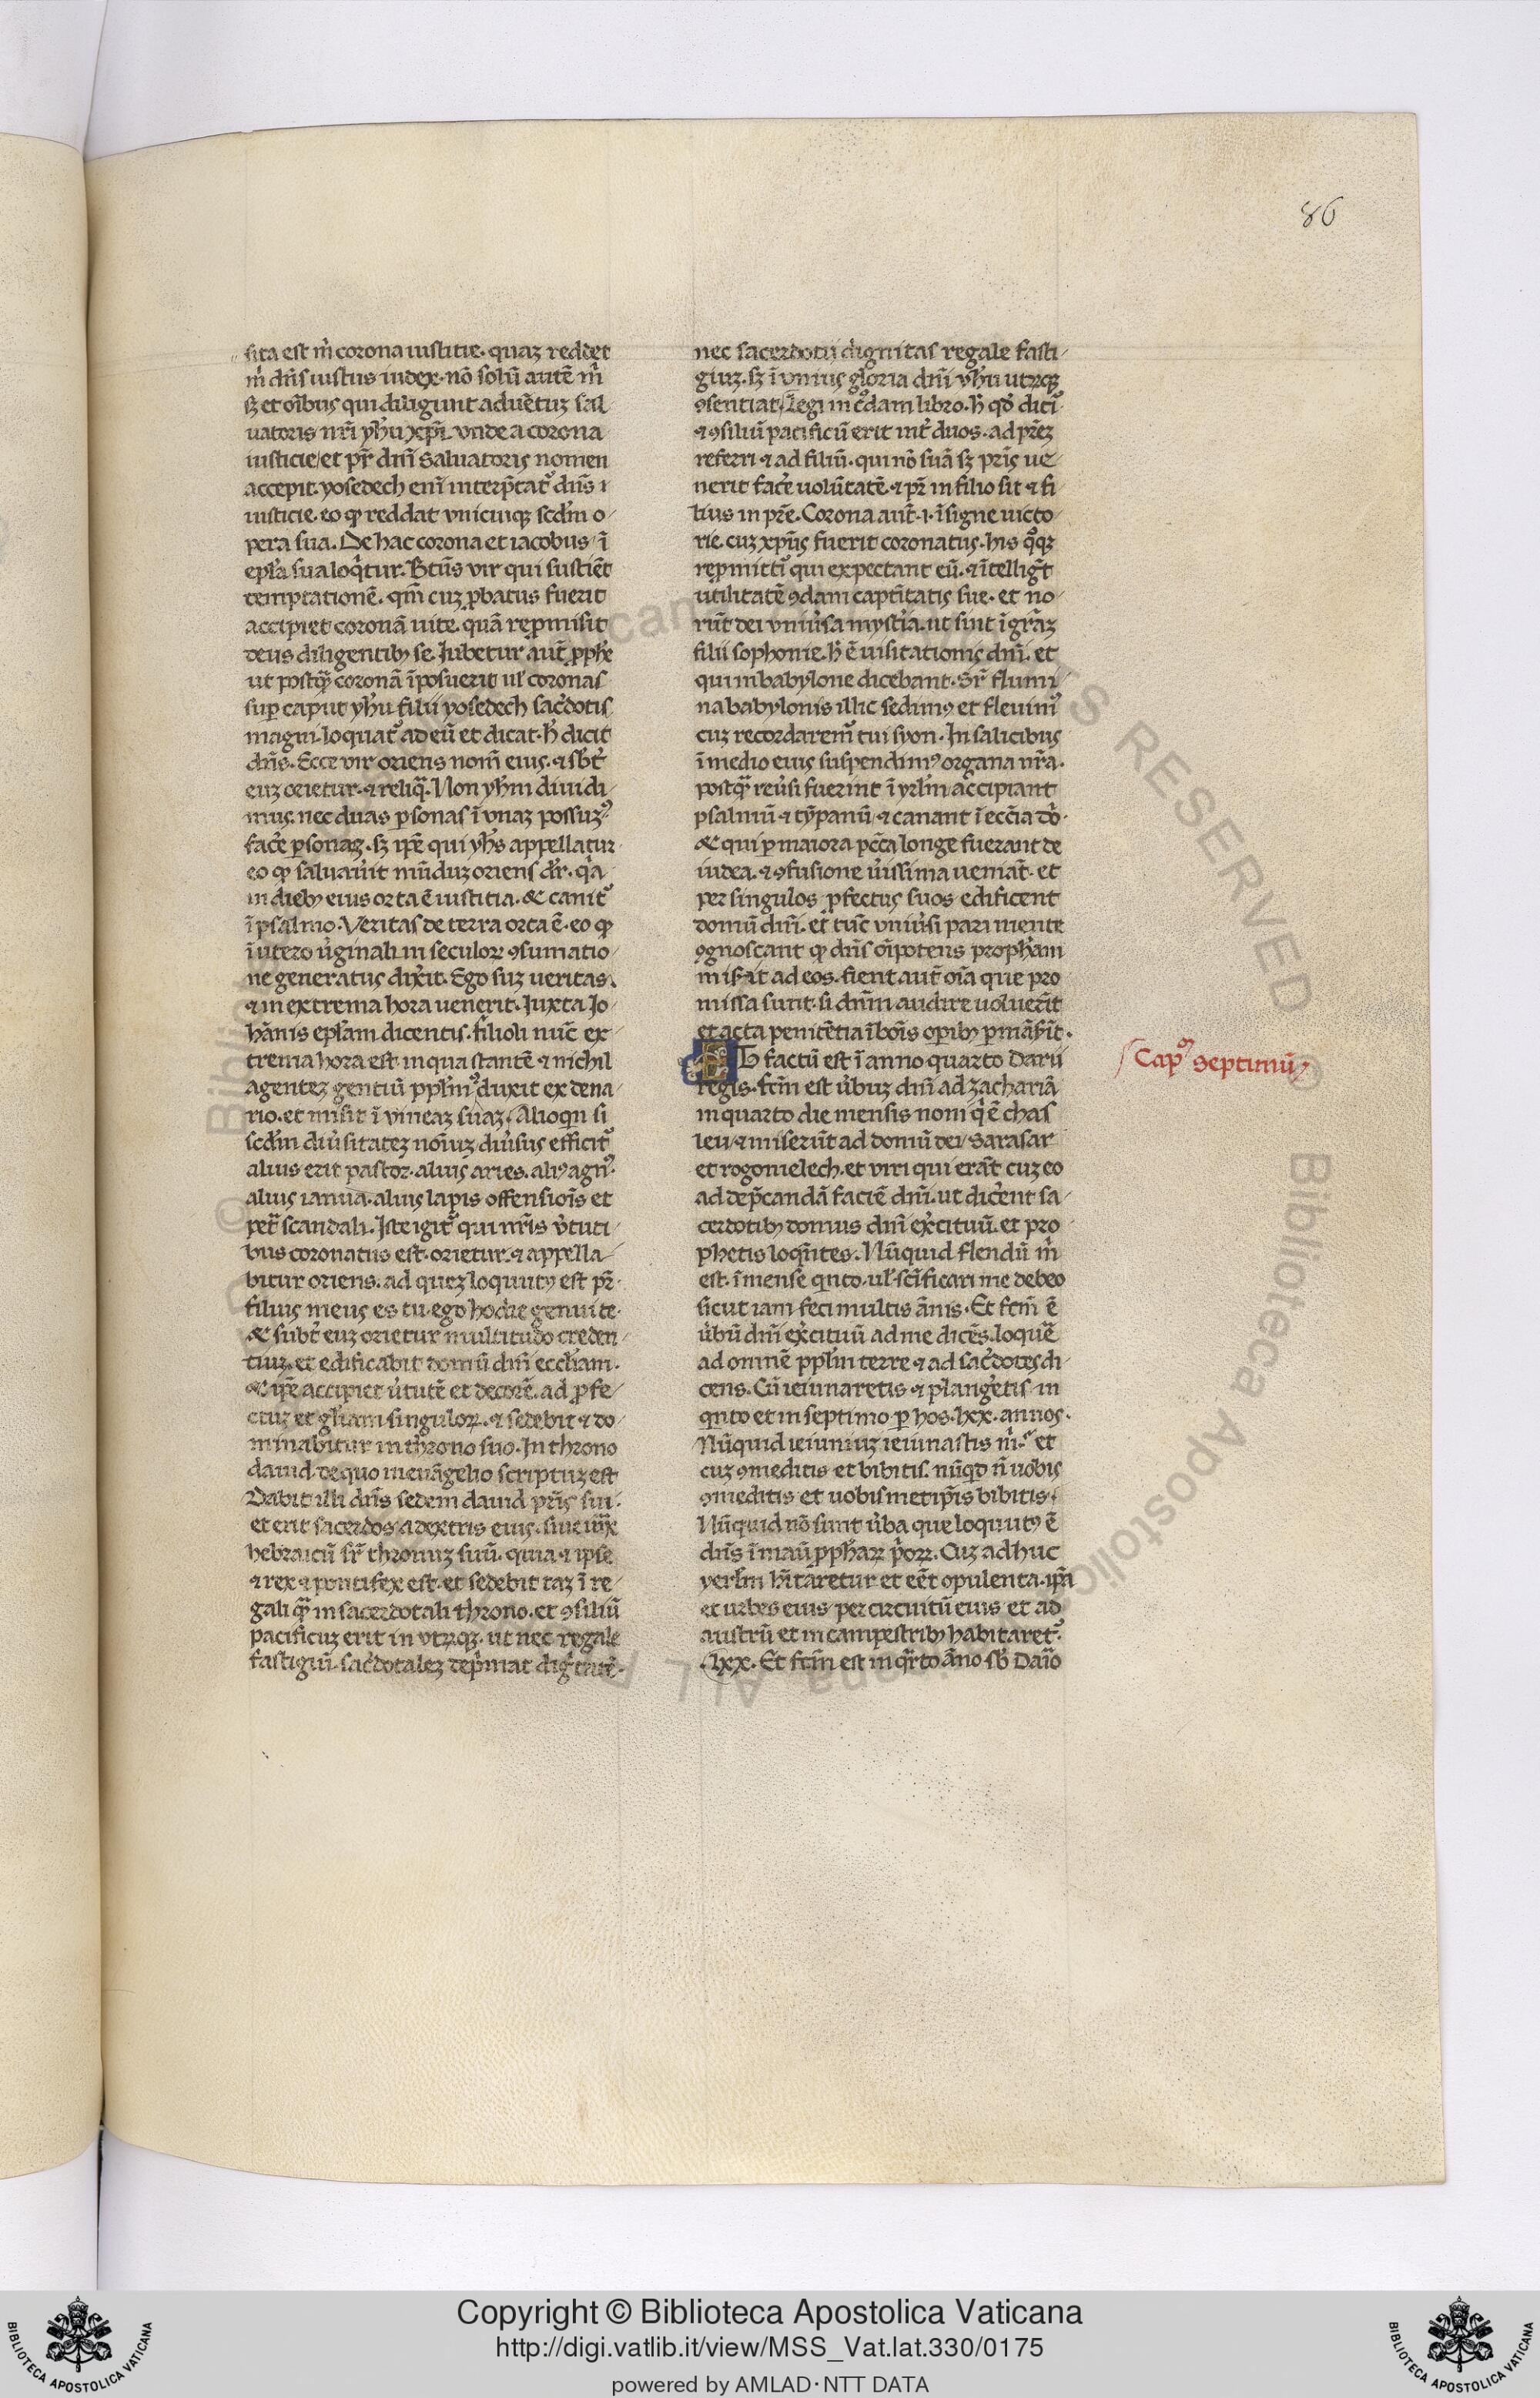 86
sita est m̃ corona iustitie. quaʒ reddet
m̃ dñs iustus iudex. nõ solũ autẽ m̃
sʒ et oĩbus qui diligunt aduẽtuʒ sal
uatoris nr̃i yhũ xp̃i. vnde a corona
iusticie / et pr̃ dñi saluatoris nomen
accepit. yosedech eni interp̃tat᷒ dñs i
iusticie. eo ꝙ reddat vnicuiqʒ scdm̃ o/
pera sua. De hac corona et iacobus / ĩ
epl̃a sua loq̃tur. Btũs vir qui suffert
temptationẽ. qm̃ cuʒ ꝓbatus fuerit
accipiet coronã uite. quã repmisit
deus diligentibȝ se. Iubetur aut̃ ꝓphe
ut postq̃ʒ coronã ĩposuerit ul᷒ coronas
suꝑ caput yhũ filii yosedech sac̃dotis
magni. loquat᷒ ad eũ et dicat. h̃ dicit
dñs. Ecce vir oriens nom̃ eius. ⁊ sbt̃
euʒ orietur. ⁊ reliq̃. Non yhm̃ diuidi/
mus. nec duas ꝑsonas ĩ vnaʒ possuʒ᷒
fac̃e ꝑsonaʒ. sʒ ip̃e qui yhs̃ appellatur
eo ꝙ saluau̾it mũduʒ oriens dr̃. q̃a
in diebȝ eius orta ẽ iustitia. & canit᷒
ĩ psalmo. Veritas de terra orta ẽ. eo ꝙ
ĩ utero u̾ginali in seculoꝝ ꝯsumatio/
ne generatus dixit. Ego suʒ ueritas.
⁊ in extrema hora uenerit. Iuxta Io/
hãnis epl̃am dicentis. filioli nuc̃ ex/
trema hora est. in qua stantẽ ⁊ nichil
agenteʒ gentiũ ppl̃m᷒ duxit ex dena/
rio. et misit ĩ vineaʒ suaʒ. Alioqñ si
scdm̃ diu̾sitateʒ noĩuʒ diu̾sus efficit᷒
alius erit pastor. alius aries. aliȝ agn᷒.
alius ianua. alius lapis offensiois et
petr̃ scandali. Iste igit᷒ qui nr̃is v̾tuti/
bus coronatus est. orietur. ⁊ appella/
bitur oriens. ad queʒ loquutȝ est pr̃.
filius meus es tu. ego hodie genui te.
& subt̃ euʒ orietur multitudo creden/
tiuʒ. et edificabit domũ dñi eccl̃iam.
& ip̃e accipiet u̾tutẽ et decorẽ. ad ꝓfe/
ctuʒ et gl̃iam singuloꝝ. ⁊ sedebit ⁊ do/
minabitur in throno suo. In throno
dauid. de quo in euãgelio scriptuʒ est
Dabit illi dñs sedem dauid pr̃is sui.
et erit sacerdos a dextris eius. siue iux̃
hebraicũ sr̃ thronuʒ suũ. quia ⁊ ipse
⁊ rex ⁊ pontifex est. et sedebit taʒ ĩ re/
gali q̃ʒ in sacerdotali throno. et ꝯsiliũ
pacificuʒ erit in vtrqʒ. ut nec regale
fastigiũ. sac̃dotaleʒ dep̃mat dig̃tatẽ.
nec sacerdotii dignitas regale fasti/
giuʒ. sʒ ĩ vnius gloria dñi yhũ utrqʒ
ꝯsentiat. Legi in c᷒dam libro. h̃ qd̾ dicit᷒
⁊ ꝯsiliũ pacificũ erit int̃ duos. ad pr̃eʒ
referri ⁊ ad filiũ. qui nõ suã sʒ pr̃is ue/
nerit fac̃e uolũtatẽ. ⁊ pr̃ in filio sit ⁊ fi/
lius in pr̃e. Corona aut̃. i. ĩsigne uicto/
rie. cuʒ xp̃us fuerit coronatus. his q᷒qʒ
repmittit᷒ qui expectant eũ. ⁊ ĩtelligt̃
utilitatẽ ꝯdam captĩtatis sue. et no/
rũt dei vniu̾sa mystia. ut sint ĩ gr̃aʒ
filii sophonie. h̃ ẽ uisitationis dñi. et
qui in babylone dicebant. Sr̃ flumi/
na babylonis illic sedimȝ et fleuim᷒
cuʒ recordarem᷒ tui syon. In salicibus
ĩ medio eius suspendimȝ organa nr̃a.
postq̃ʒ reu̾si fuerint ĩ yrl̃m accipiant
psalmũ ⁊ tỹpanũ ⁊ canant ĩ ecc̃ia dõ.
& qui ꝑ maiora pcc̃a longe fuerant de
iudea. ⁊ ꝯfusione u̾issima ueniat̃. et
per singulos ꝓfectus suos edificent
domũ dñi. et tuc̃ vniu̾si pari mente
ꝯgnoscant ꝙ dñs oĩpotens propham̃
mis̾it ad eos. fient aut̃ oĩa que pro
missa sunt. si dñm audire uoluerit̃
et acta penitẽtia ĩ boĩs opibȝ ꝑmãs̾it̃.
Et factũ est ĩ anno quarto Darii
regis. fctm̃ est u̾buʒ dñi ad zachariã
in quarto die mensis noni q̃ ẽ chas
leu. ⁊ miserũt ad domũ dei / Sarasar
et rogomelech. et viri qui erãt cuʒ eo
ad dep̃candã faciẽ dñi. ut dic̃ent sa/
cerdotibȝ domus dñi exc̃ituũ. et pro
phetis loqñtes. Nũquid flendũ m̃
est. ĩ mense qnto. ul᷒ scĩficari me debeo
sicut iam feci multis ãnis. Et fctm̃ ẽ
u̾bũ dñi exc̃ituũ ad me dicẽs. loquẽ
ad omnẽ ppl̃m terre ⁊ ad sac̃dotes di/
cens. Cũ ieiunaretis ⁊ plangẽtis in
qnto et in septimo ꝑ hos. lxx. annos.
Nũquid ieiuniuʒ ieiunastis m̃. et
cuʒ ꝯmeditis et bibitis. nũqd n̄ uobis
ꝯmeditis et uobismetip̃is bibitis.
Nũquid nõ sunt u̾ba que loquutȝ ẽ
dñs ĩ manũ ꝓpharꝝ p̃orꝝ. Cuʒ adhuc
yerl̃m h̃itaretur et eẽt opulenta. ip̃a
et urbes eius per circuitũ eius et ad
austrũ et in campestribȝ habitaret᷒.
.lxx. Et fctm̃ est in qrto ãno sb̃ Daĩo
Cap᷒ septimũ
Copyright © Biblioteca Apostolica Vaticana
http://digi.vatlib.it/view/MSS_Vat.lat.330/0175
powered by AMLAD·NTT DATA